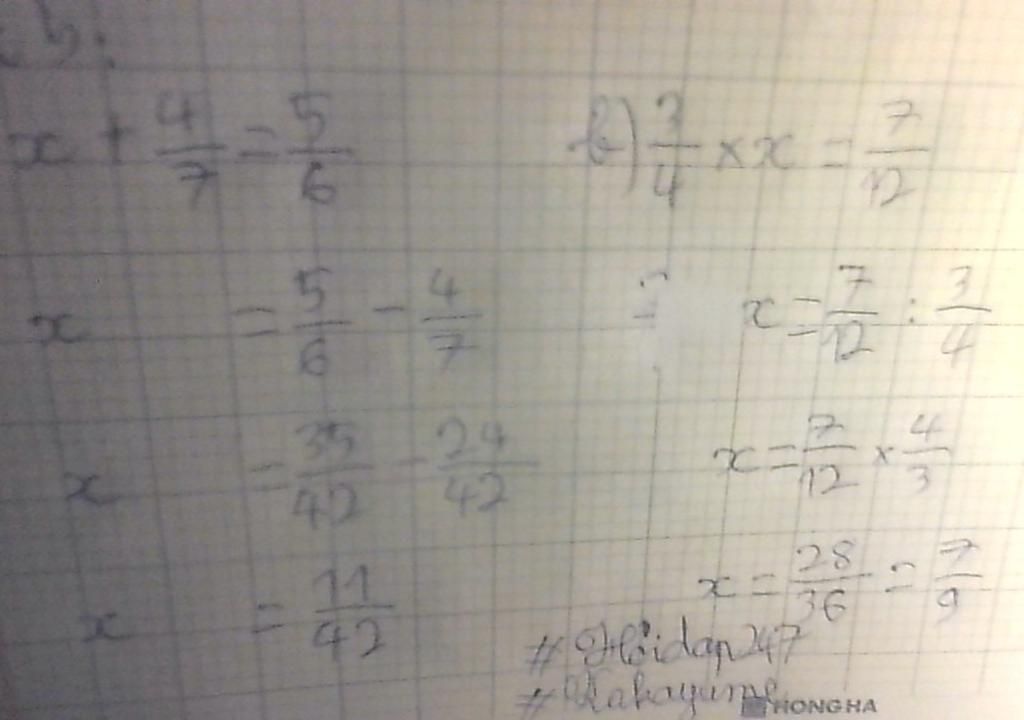 x + 4/7 = 5/6
x = 5/6 - 4/7
x = 35/42 - 24/42
x = 11/42
b) 3/4 × x = 7/12
x = 7/12 : 3/4
x = 7/12 × 4/3
x = 28/36 = 7/9
#Hoidap247
HONGHA